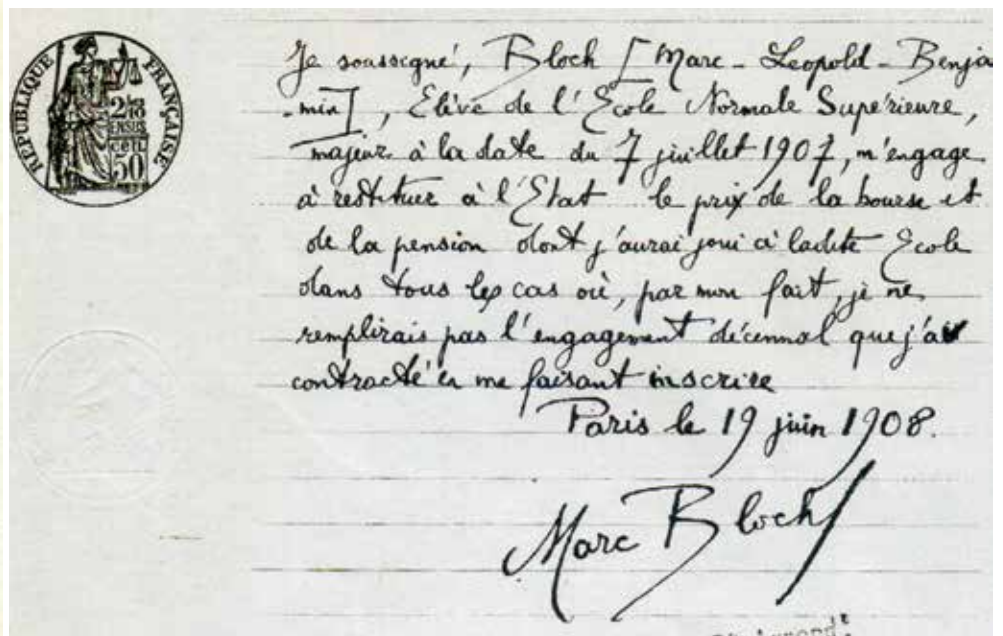 RÉPUBLIQUE FRANÇAISE
50
Je soussigné, Bloch [Marc - Leopold - Benja
-min], Elève de l'Ecole Normale Supérieure,
majeur à la date du 7 juillet 1907, m'engage
à restituer à l'Etat le prix de la bourse et
de la pension dont j'aurai joui à ladite Ecole
dans tous les cas où, par mon fait, je ne
remplirais pas l'engagement décennal que j'ai
contracté en me faisant inscrire
Paris le 19 juin 1908.
Marc Bloch